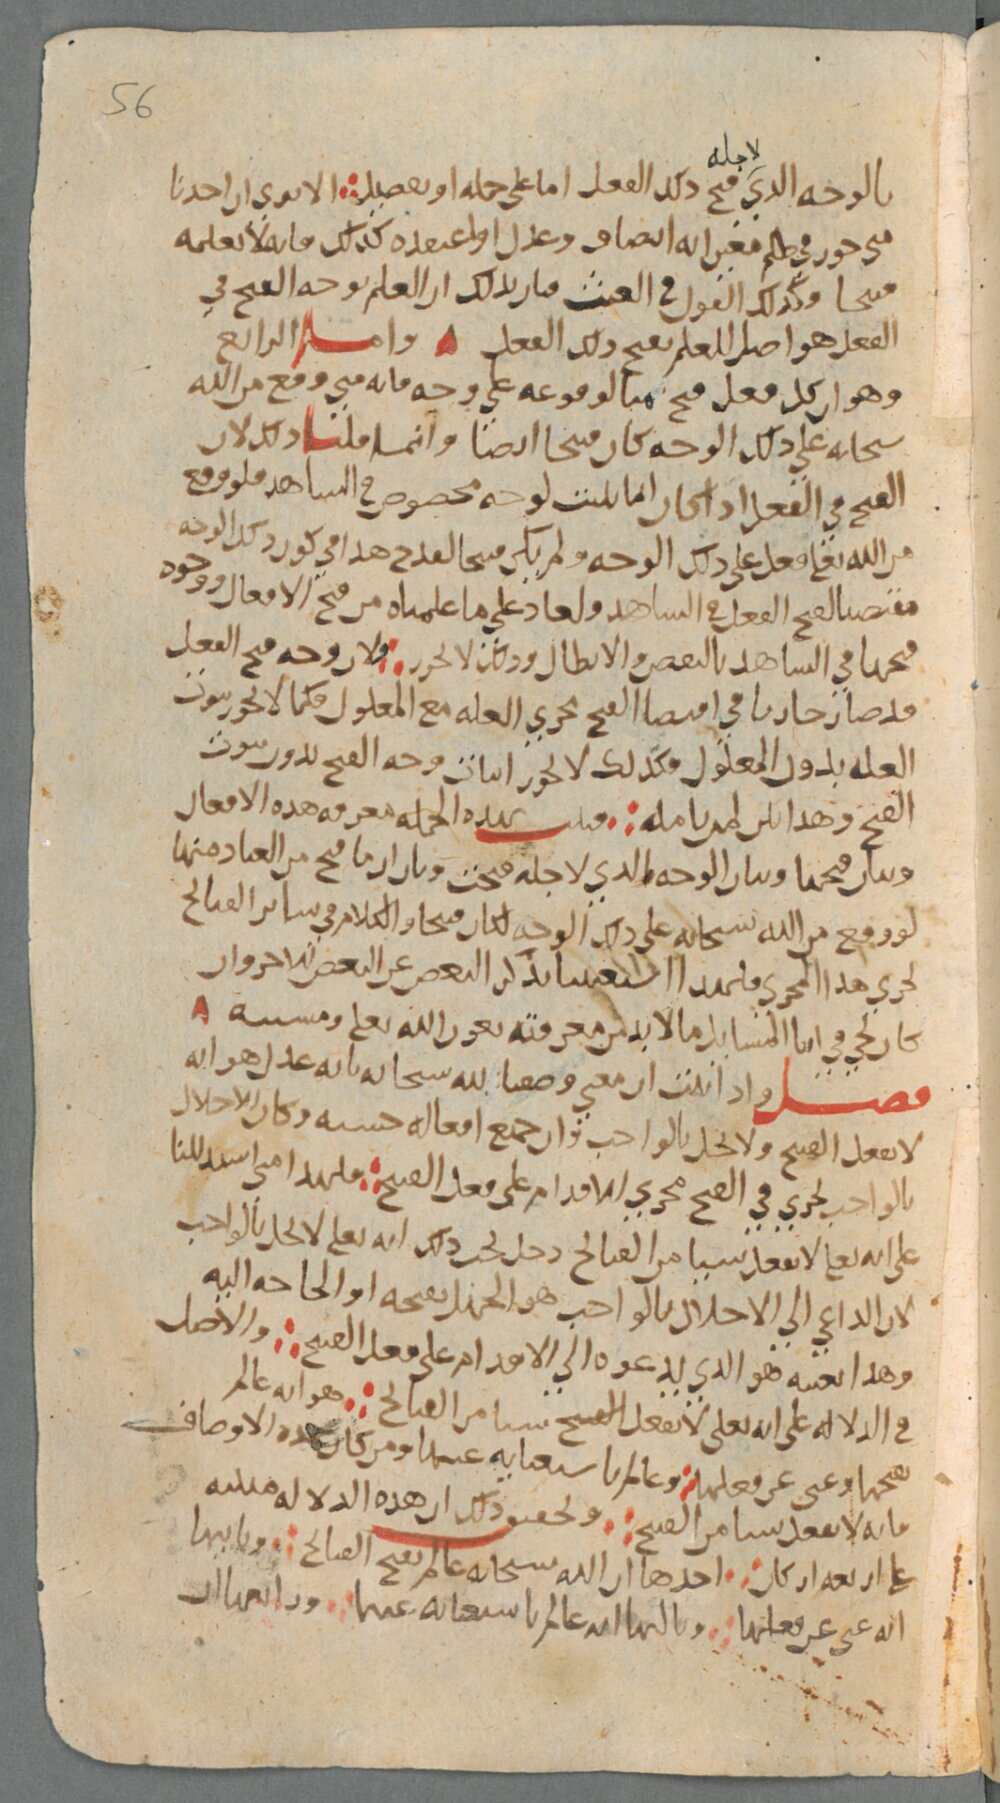 56
لاجله
بالوجه الذي قبح ذلك الفعل اما على جمله او تفصيل الا ترى ان احدنا
متى جوز في ظلم معين انه انصاف وعدل او اعتقده كذلك فانه لا يعلمه
قبيحا وكذلك القول في العبث فبان بذلك ان العلم بوجه القبح في
الفعل هو اصل للعلم بقبح ذلك الفعل ۸ واما الرابع
وهو ان كل فعل قبح منا لوقوعه على وجه فانه متى وقع من الله
سبحانه على ذلك الوجه كان قبيحا ايضا وانما قلنا ذلك لان
القبح في الفعل اذا كان انما يثبت لوجه مخصوص في الشاهد فلو وقع
من الله تعالى فعل على ذلك الوجه ولم يكن قبيحا لقدح هذا في كون ذلك الوجه
مقتضيا لقبح الفعل في الشاهد ولعاد على ما علمناه من قبح الافعال ووجوه
قبحها في الشاهد بالنقض والابطال وذلك لا يجوز ولان وجه قبح الفعل
قد صار جاريا في اقتضا القبح مجرى العله مع المعلول فكما لا يجوز ثبوت
العله بدون المعلول فكذلك لا يجوز اثبات وجه القبح بدون ثبوت
القبح وهذا بين لمن تامله فثبت بهذه الجمله معرفه هذه الافعال
وبيان قبحها وبيان الوجه الذي لاجله قبحت وبان ان ما قبح من العباد منها
لو وقع من الله سبحانه على ذلك الوجه لكان قبيحا والكلام في سائر القبائح
يجري هذا المجرى فلهذا استغنينا بذكر البعض عن البعض الاخر وان
كان يجي في اثنا المسايل ما لابد من معرفته بعون الله تعالى ومشيته ۸
فصل واذا ثبت ان معنى وصفنا لله سبحانه بانه عدل هو انه
لا يفعل القبيح ولا يخل بالواجب وان جميع افعاله حسنه وكان الاخلال
بالواجب يجري في القبح مجرى الاقدام على فعل القبيح فلهذا متى استدللنا
على انه تعالى لا يفعل شيئا من القبائح دخل تحت ذلك انه تعالى لا يخل بالواجب
لان الداعي الى الاخلال بالواجب هو الجهل بقبحه او الحاجه اليه
وهذا بعينه هو الذي يدعوه الى الاقدام على فعل القبيح والاصل
في الدلاله على انه تعالى لا يفعل القبيح شيئا من القبائح هو انه عالم
بقبحها وغني عن فعلها وعالم باستغنايه عنها ومن كان بهذه الاوصاف
فانه لا يفعل شيئا من القبيح وتحقيق ذلك ان هذه الدلاله مبنيه
على اربعه اركان احدها ان الله سبحانه عالم بقبح القبائح وثانيها
انه غني عن فعلها وثالثها انه عالم باستغنائه عنها ورابعها ان